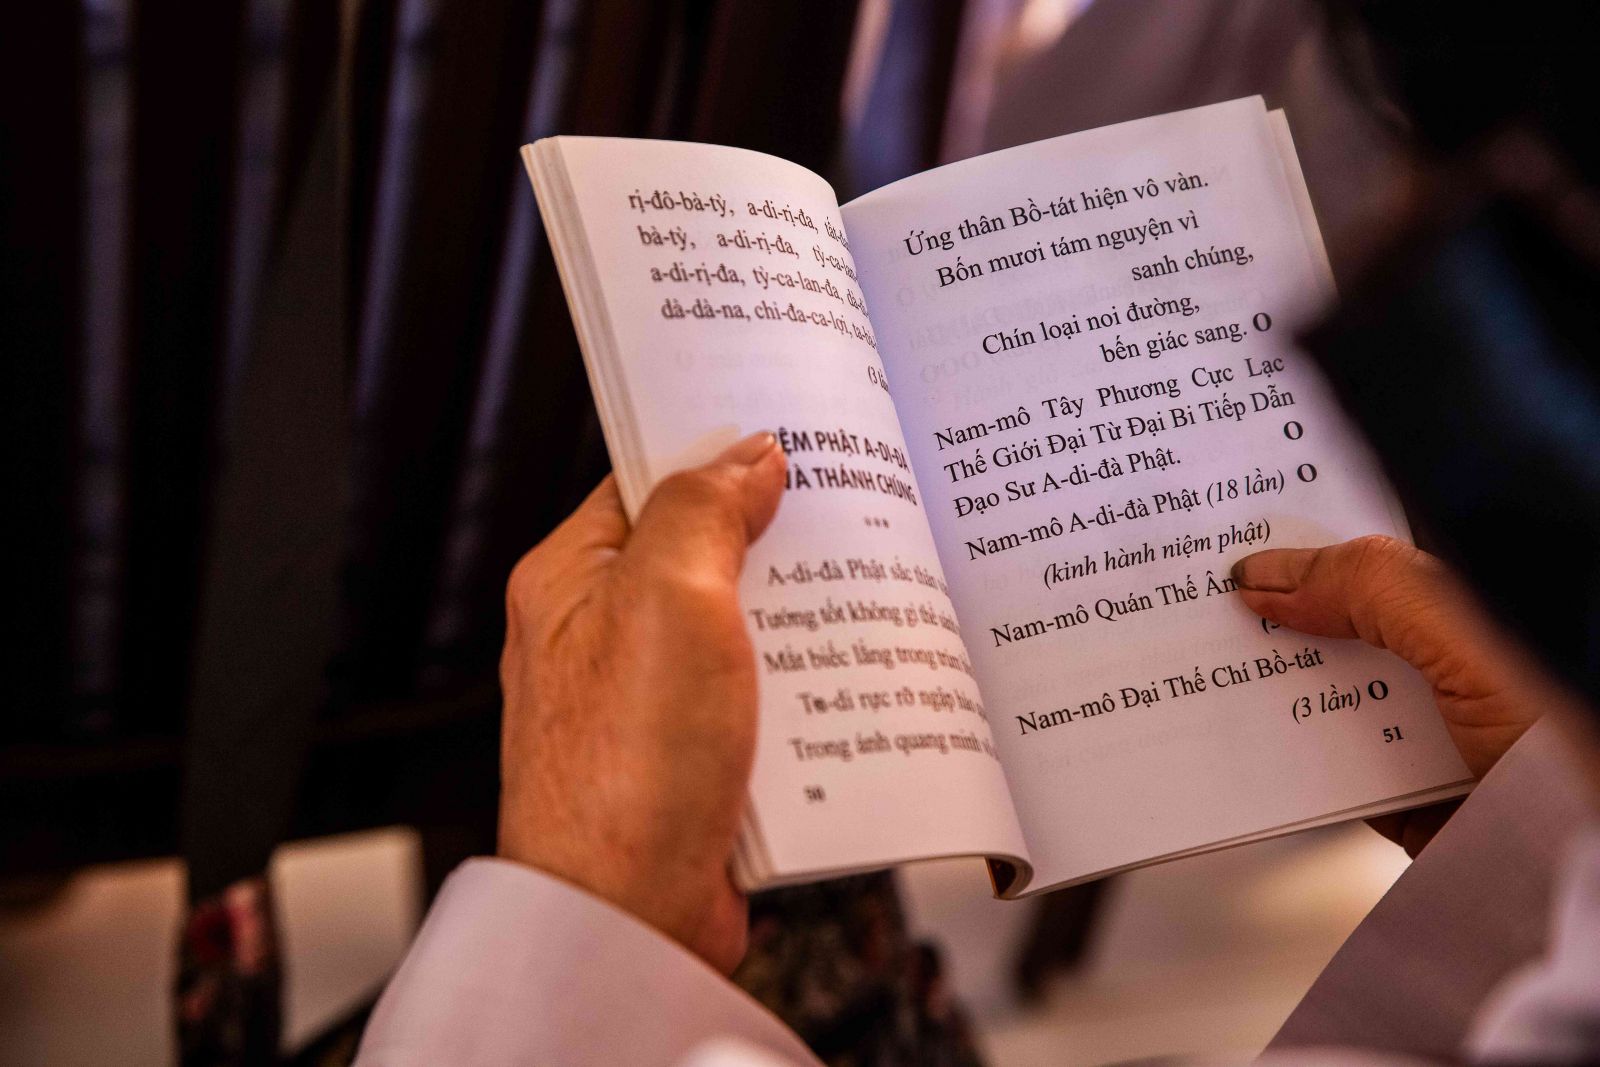 rị-đô-bà-tỳ, a-di-rị-đa,
bà-tỳ, a-di-rị-đa, tỳ-ca-lan-
a-di-rị-đa, tỳ-ca-lan-đa,
dà-dà-na, chi-đa-ca-lợi,
(3
PHẬT A-DI-ĐÀ
VÀ THÁNH CHÚNG
***
A-di-đà Phật sắc thân
Tướng tốt không gì thể
Mắt biếc lắng trong
Tu-di rực rỡ ngập
Trong ánh quang minh
50
Ứng thân Bồ-tát hiện vô vàn.
Bốn mươi tám nguyện vì
sanh chúng,
Chín loại noi đường,
bến giác sang. O
Nam-mô Tây Phương Cực Lạc
Thế Giới Đại Từ Đại Bi Tiếp Dẫn
Đạo Sư A-di-đà Phật. O
Nam-mô A-di-đà Phật (18 lần) O
(kinh hành niệm phật)
Nam-mô Quán Thế Âm
Nam-mô Đại Thế Chí Bồ-tát
(3 lần) O
51